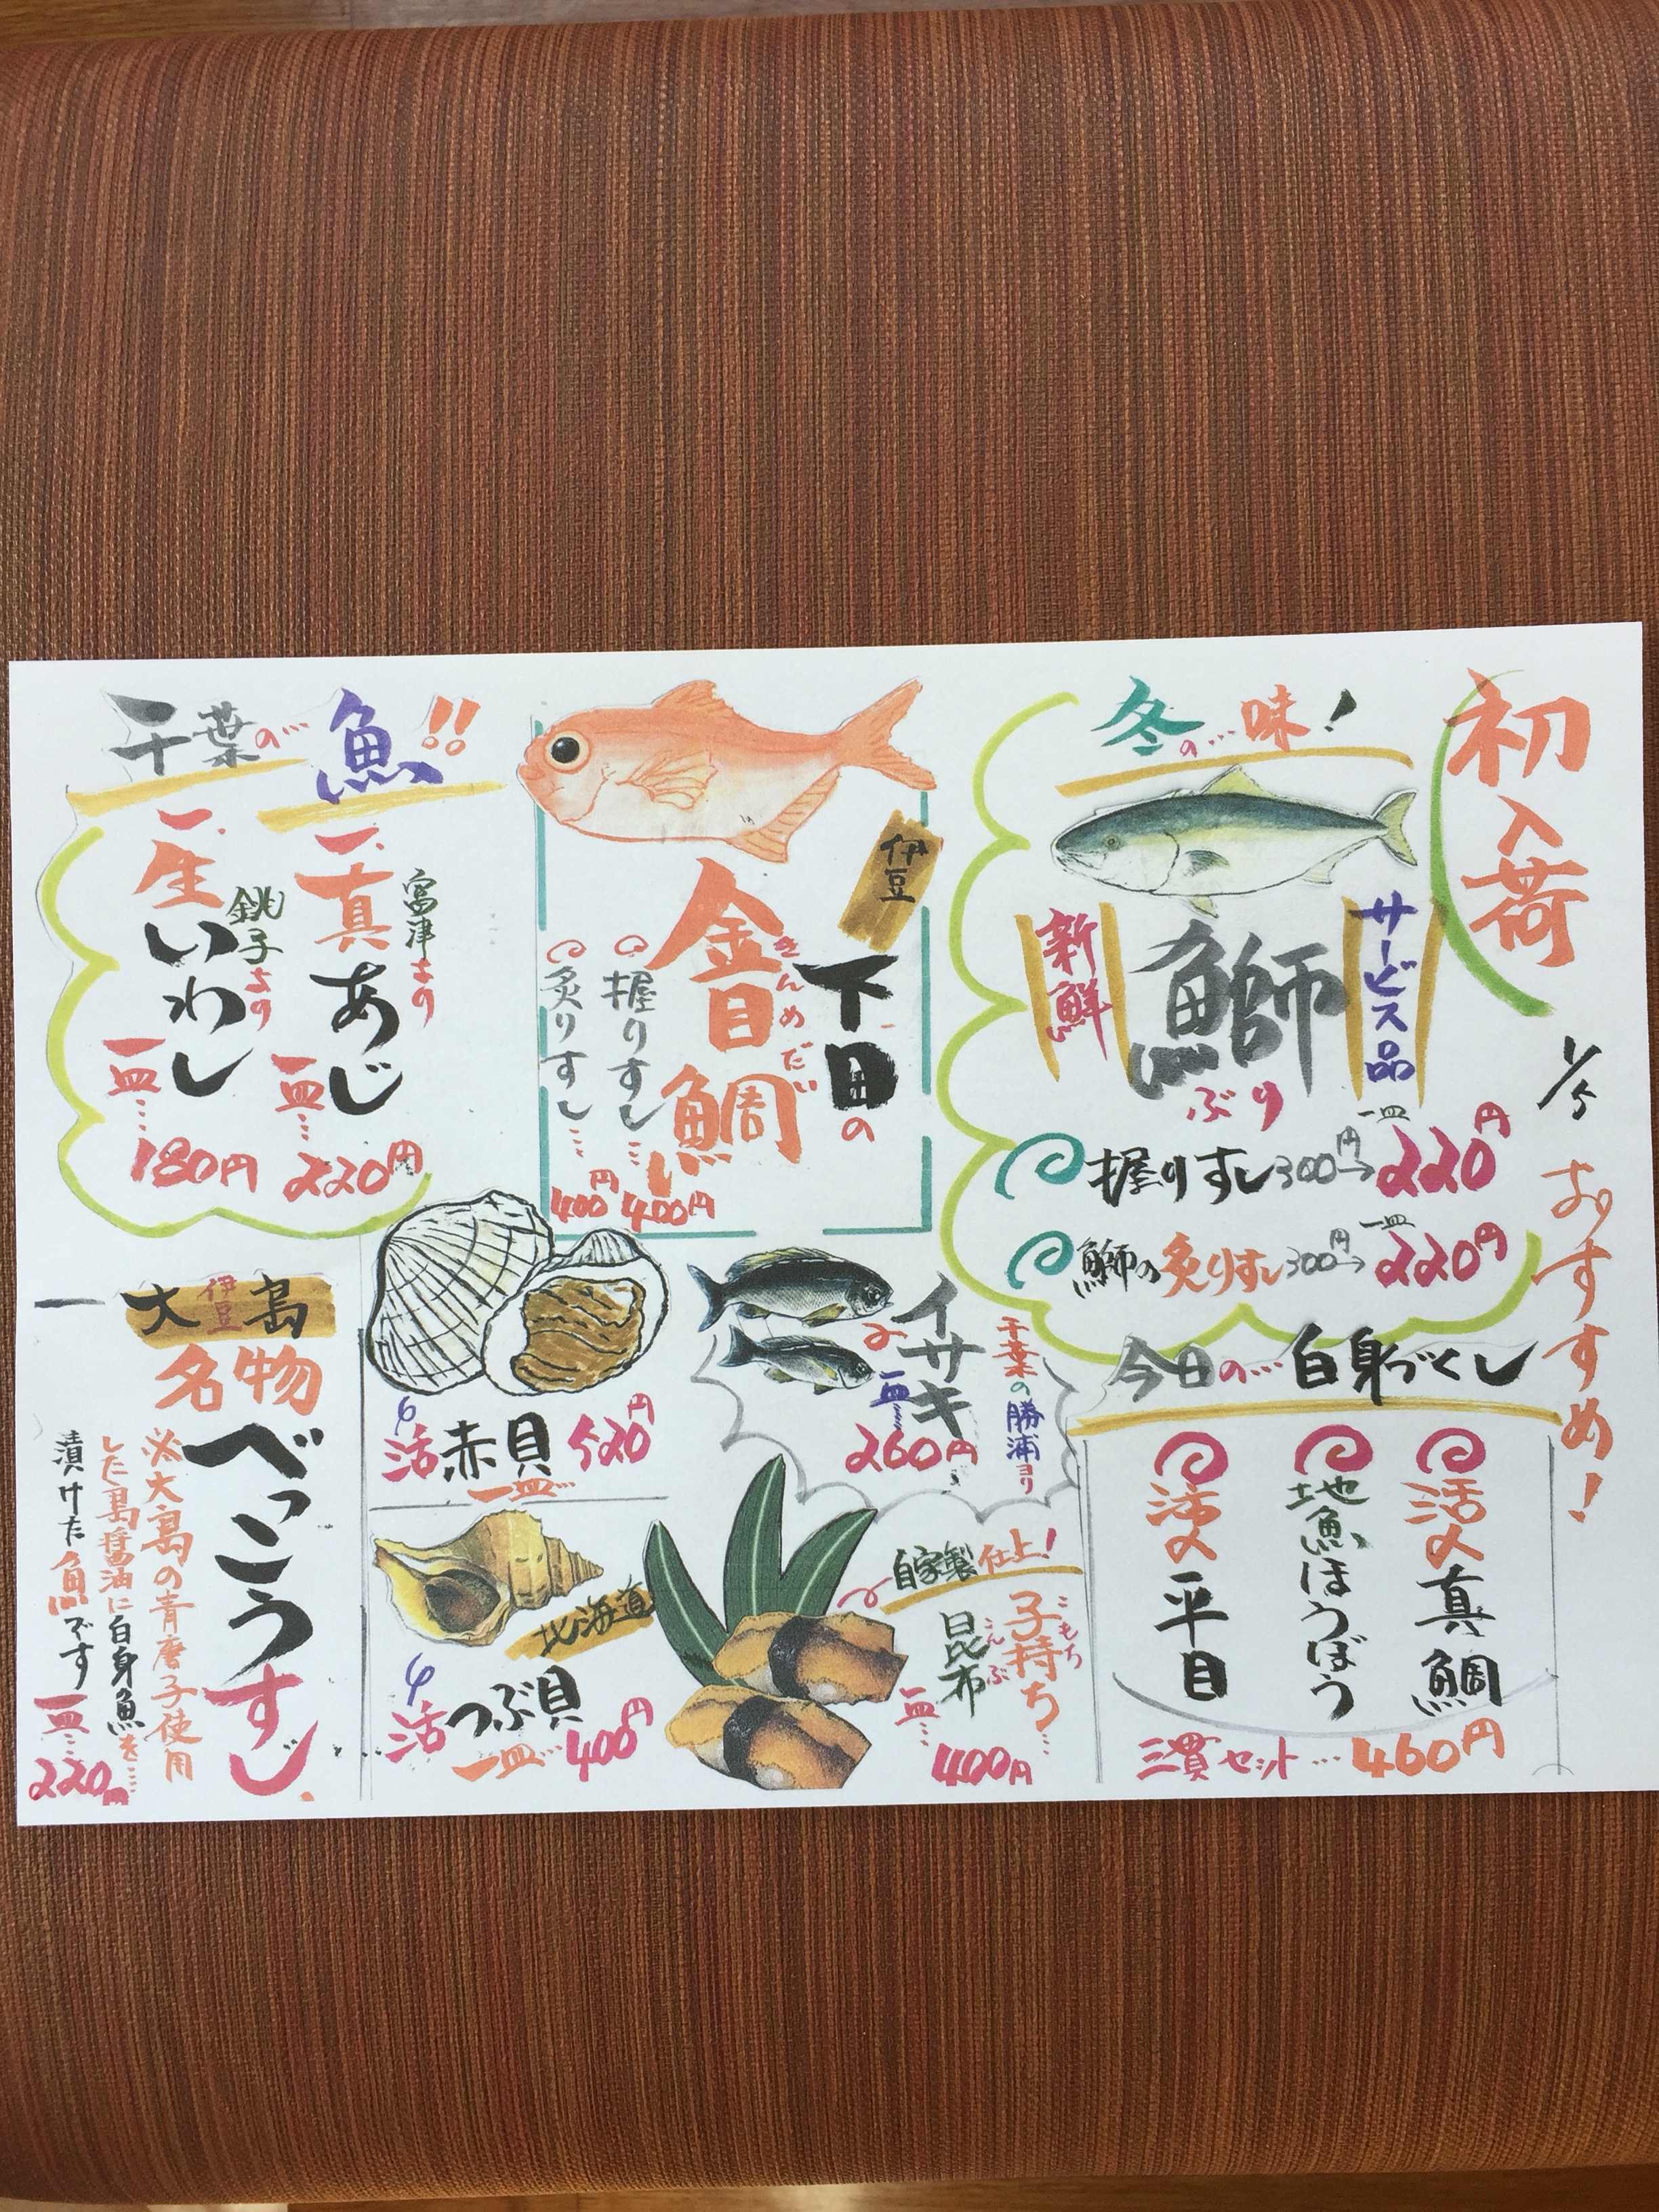 初入荷
1/5 おすすめ!
冬の…味!
サービス品
鰤
ぶり
新鮮
握りすし300円→一皿220円
鰤の炙りすし300円→一皿220円
今日の…白身づくし
活〆真鯛
地魚ほうぼう
活〆平目
三貫セット…460円
伊豆
下田の
金目鯛
きんめだい
握りすし…400円
炙りすし…400円
千葉の勝浦ヨリ
イサキ
一皿…260円
自家製仕上!
子持ち
こもち
昆布
こんぶ
一皿…400円
千葉の…魚!!
富津より
一.真あじ
一皿…220円
銚子より
一.生いわし
一皿…180円
活赤貝520円
一皿…
北海道
活つぶ貝
一皿…400円
伊豆
一大島
名物
べっこうすし
※大島の青唐子使用
した島醤油に白身魚を…
漬けた魚です
一皿…220円